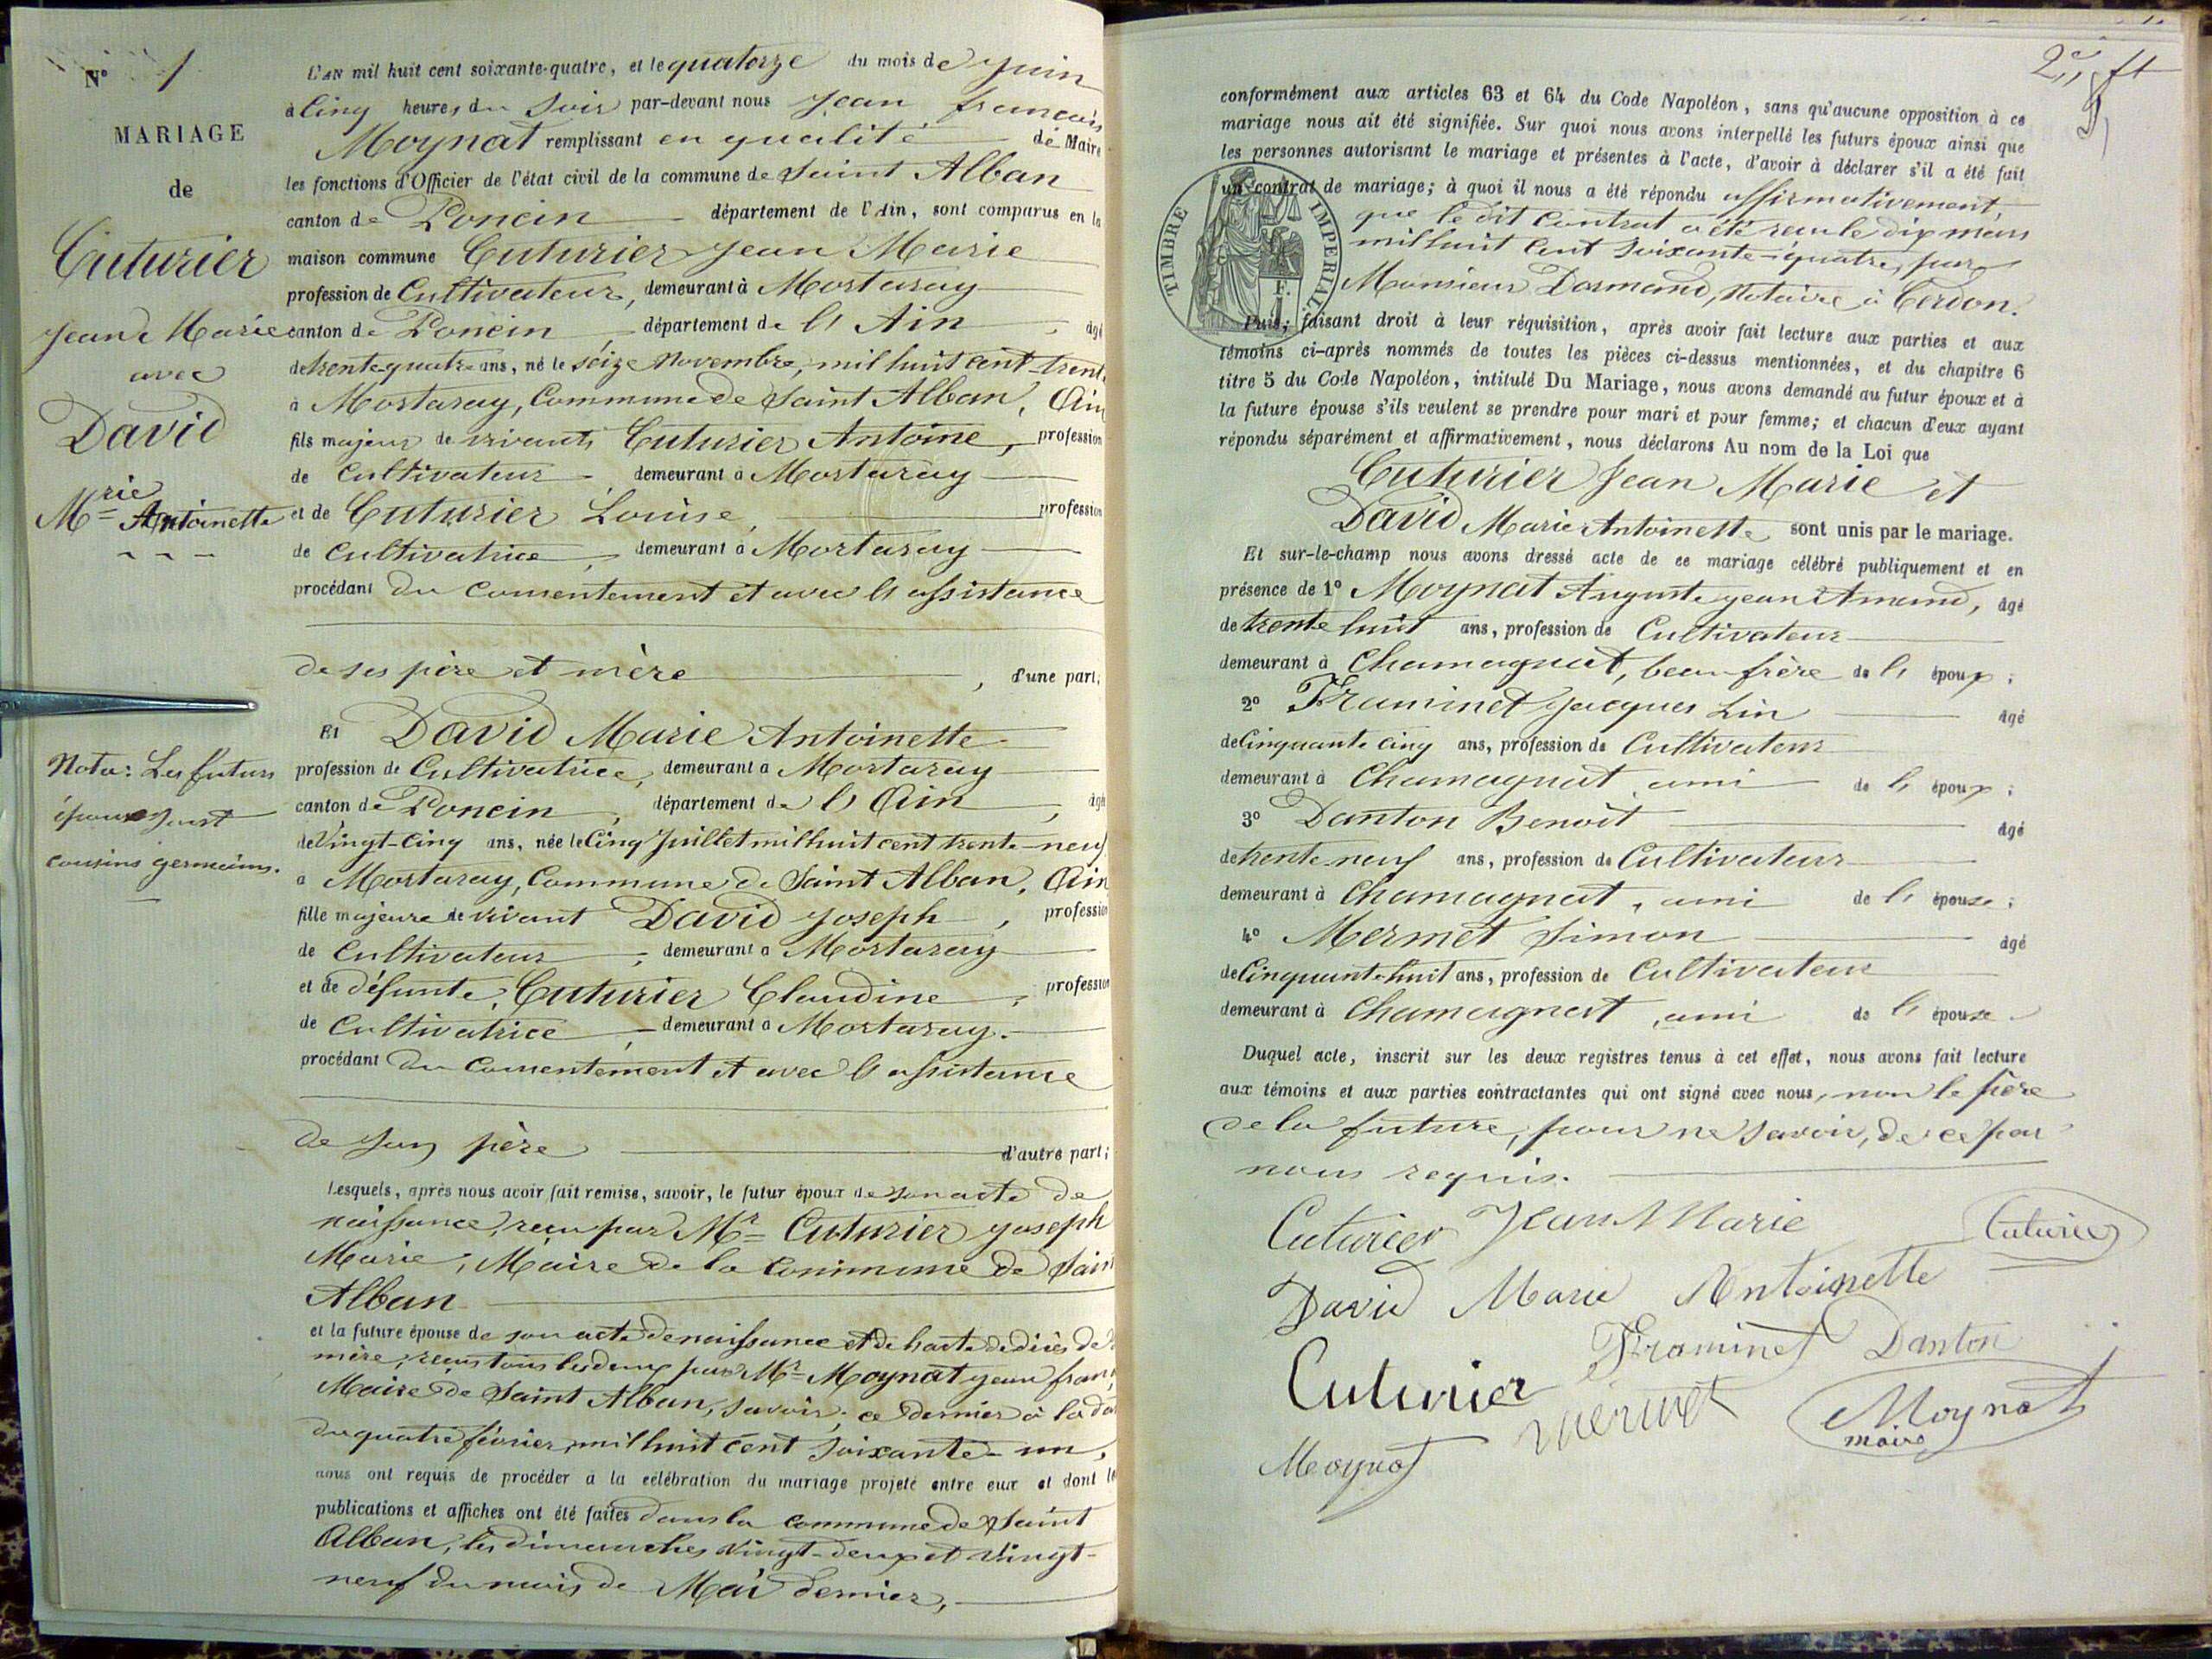 N° 1
MARIAGE
de
Cuturier
Jean Marie
avec
David
Mrie Antoinette
Nota: Les futurs
époux sont
cousins germains.
L'AN mil huit cent soixante-quatre, et le quatorze du mois de Juin
à Cinq heures du Soir par-devant nous Jean francois
Moynat remplissant en qualité de Maire
les fonctions d'Officier de l'état civil de la commune de Saint Alban
canton de Poncin département de l'Ain, sont comparus en la
maison commune Cuturier Jean Marie
profession de Cultivateur, demeurant à Mortaray
canton de Poncin, département de l'Ain, âgé
de trente quatre ans, né le seize Novembre, mil huit cent trente
à Mortaray, Commune de Saint Alban, Ain
fils majeur de vivants Cuturier Antoine, profession
de Cultivateur demeurant à Mortaray
et de Cuturier Louise, profession
de Cultivatrice, demeurant à Mortaray
procédant du consentement et avec l'assistance
de ses père et mère, d'une part;
Et David Marie Antoinette
profession de Cultivatrice, demeurant à Mortaray
canton de Poncin, département de l'Ain, âgé
de Vingt-cinq ans, née le Cinq Juillet mil huit cent trente-neuf
à Mortaray, Commune de Saint Alban, Ain
fille majeure de vivant David Joseph, profession
de Cultivateur, demeurant à Mortaray
et de défunte, Cuturier Claudine, profession
de Cultivatrice, demeurant à Mortaray.
procédant du consentement et avec l'assistance
de son père d'autre part;
Lesquels, après nous avoir fait remise, savoir, le futur époux de son acte de
naissance, reçu par Mr Cuturier Joseph
Marie, Maire de la Commune de Saint
Alban
et la future épouse de son acte de naissance et de l'acte de décès de
mère, reçus tous les deux par Mr Moynat Jean fran
Maire de Saint Alban, savoir; ce dernier à la da
du quatre février mil huit cent soixante-un,
nous ont requis de procéder à la célébration du mariage projeté entre eux et dont le
publications et affiches ont été faites dans la commune de Saint
Alban, les dimanches vingt-deux et vingt-
neuf du mois de Mai dernier,
conformément aux articles 63 et 64 du Code Napoléon, sans qu'aucune opposition à ce
mariage nous ait été signifiée. Sur quoi nous avons interpellé les futurs époux ainsi que
les personnes autorisant le mariage et présentes à l'acte, d'avoir à déclarer s'il a été fait
un contrat de mariage; à quoi il nous a été répondu affirmativement,
que le dit Contrat a été reçu le dix mars
mil huit Cent soixante-quatre, par
Monsieur Dormand, Notaire à Cerdon.
TIMBRE IMPERIAL
Puis; faisant droit à leur réquisition, après avoir fait lecture aux parties et aux
témoins ci-après nommés de toutes les pièces ci-dessus mentionnées, et du chapitre 6
titre 5 du Code Napoléon, intitulé Du Mariage, nous avons demandé au futur époux et à
la future épouse s'ils veulent se prendre pour mari et pour femme; et chacun d'eux ayant
répondu séparément et affirmativement, nous déclarons Au nom de la Loi que
Cuturier Jean Marie et
David Marie Antoinette sont unis par le mariage.
Et sur-le-champ nous avons dressé acte de ce mariage célébré publiquement et en
présence de 1° Moynat Auguste Jean Amand, âgé
de trente huit ans, profession de Cultivateur
demeurant à Chamagnat, beau frère de l' époux;
2° Framinet Jacques Lin âgé
de Cinquante Cinq ans, profession de Cultivateur
demeurant à Chamagnat, ami de l' époux;
3° Danton Benoît âgé
de trente-neuf ans, profession de Cultivateur
demeurant à Chamagnat, ami de l' épouse;
4° Mermet Simon âgé
de Cinquante-huit ans, profession de Cultivateur
demeurant à Chamagnat, ami de l' épouse
Duquel acte, inscrit sur les deux registres tenus à cet effet, nous avons fait lecture
aux témoins et aux parties contractantes qui ont signé avec nous, non le père
de la future, pour ne savoir, de ce par
nous requis.
Cuturier Jean Marie Cuturier
David Marie Antoinette
Framinet Danton
Cuturier Mermet Moynat
maire
Moynat